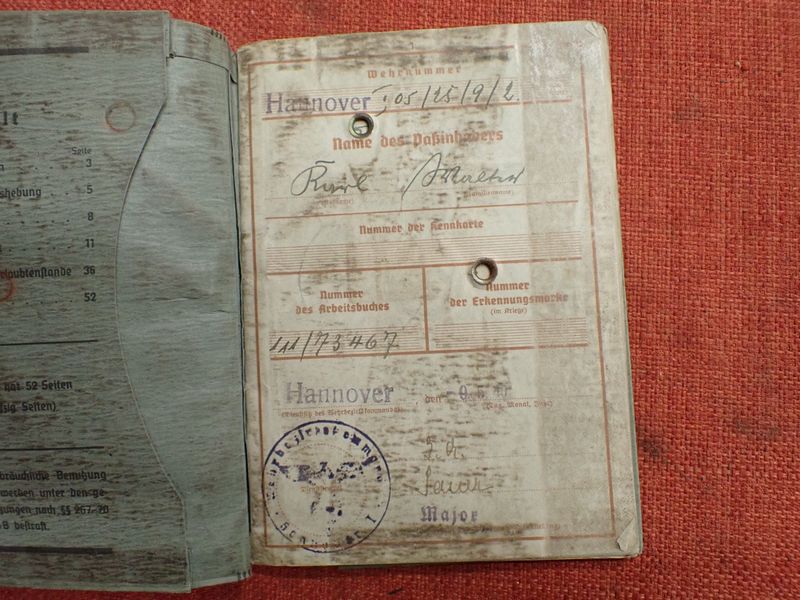 lt
Seite
n 3
shebung 5
8
11
rlaubtenstande 36
52
hat 52 Seiten
zig Seiten)
bräuchliche Benutzung
werden unter den ge-
gungen nach §§ 267-70
B bestraft.
1
Wehrnummer
Hannover I 05/25/9/2.
Name des Paßinhabers
Karl Walter
(Familienname)
Nummer der Kennkarte
Nummer
des Arbeitsbuches
Nummer
der Erkennungsmarke
(im Kriege)
111/73467
Hannover, den
(Dienstsitz des Wehrbezirkskommandos) (Tag, Monat, Jahr)
Wehrbezirkskommando
Hannover I
Major